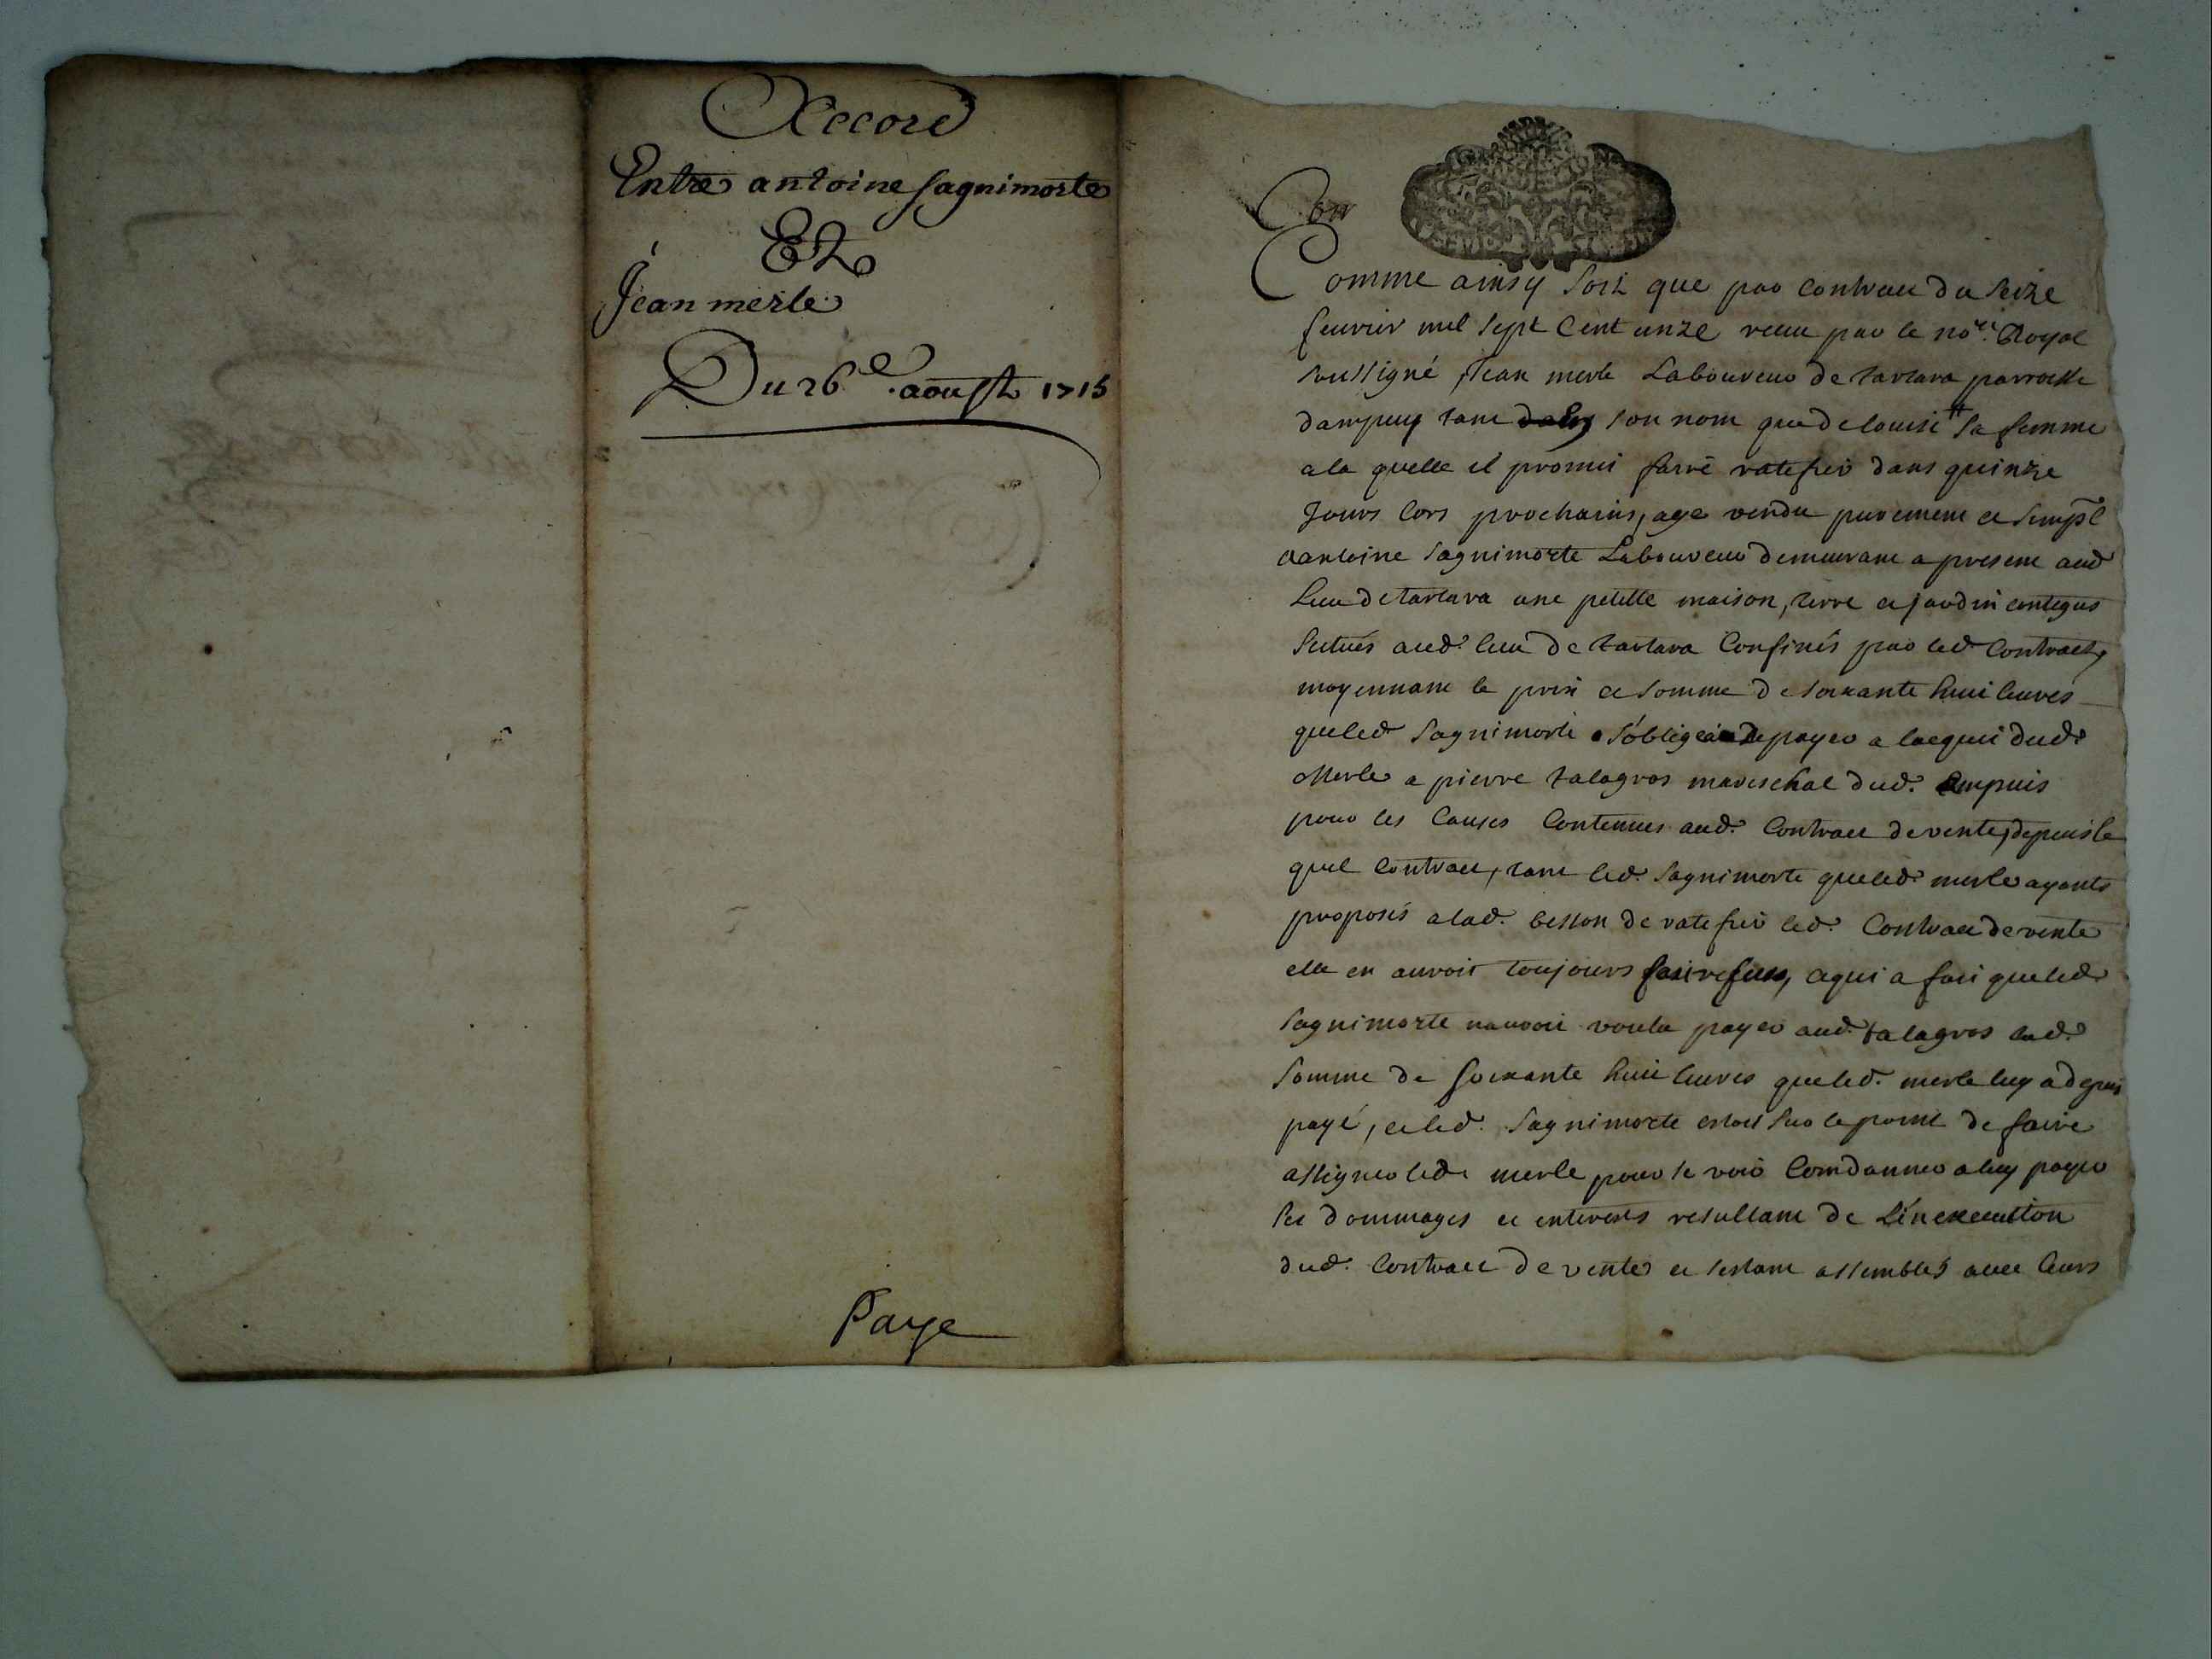 Accord
Entre antoine sagnimorte
Et
Jean merle
Du 26e. aoust 1715
Paye
Comme ainsy soit que par contract du seize
feuvrier mil sept cent unze receu par le nore. Royal
soussigné, Jean merle Laboureur de tartara parroisse
dampuy tant son nom que de louise # sa femme
a la quelle il promit faire ratefier dans quinze
Jours lors prochains, aye vendu purement et simpl
a antoine sagnimorte Laboureur demeurant a present aud
lieu de tartara une petitte maison, terre et jardin contigus
situés aud. lieu de tartara Confinés par led. Contract,
moyennant le prix et somme de soixante huit livres
que led. sagnimorte s'obligea de payer a lacquit dud.
Merle a pierre talagros mareschal dud. ampuis
pour les Causes Contenues aud. Contract de vente, depuis le
quel Contract, tant led. sagnimorte que led. merle ayants
proposés a lad. besson de ratefier led. Contract de vente
elle en auroit toujours fait refus, cequi a fait que led.
sagnimorte nauroit voulu payer aud. talagros lad.
somme de soixante huit livres que led. merle luy a depuis
payé, et led. sagnimorte estoit sur le point de faire
assigner led. merle pour se voir Comdanner a luy payer
ses dommages et interests resultant de L'inexecution
dud. Contract de vente et sestant assemblés avec leurs